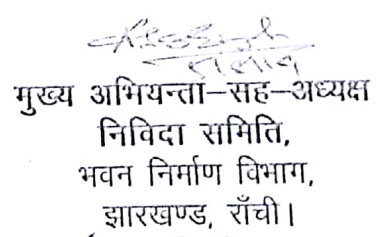 मुख्य अभियन्ता–सह–अध्यक्ष
निविदा समिति,
भवन निर्माण विभाग,
झारखण्ड, राँची।